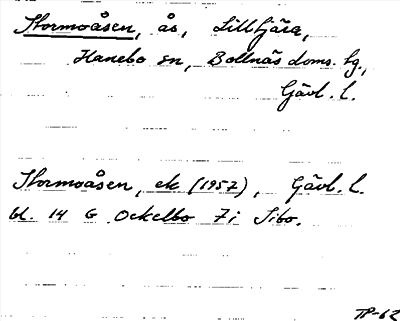 Stormoåsen, ås, Lilltjära,
Hanebo sn, Bollnäs doms. hg.,
Gävl. l.
Stormoåsen, ek (1957), Gävl. l.
bl. 14 G Ockelbo 7i Sibo.
TP-62